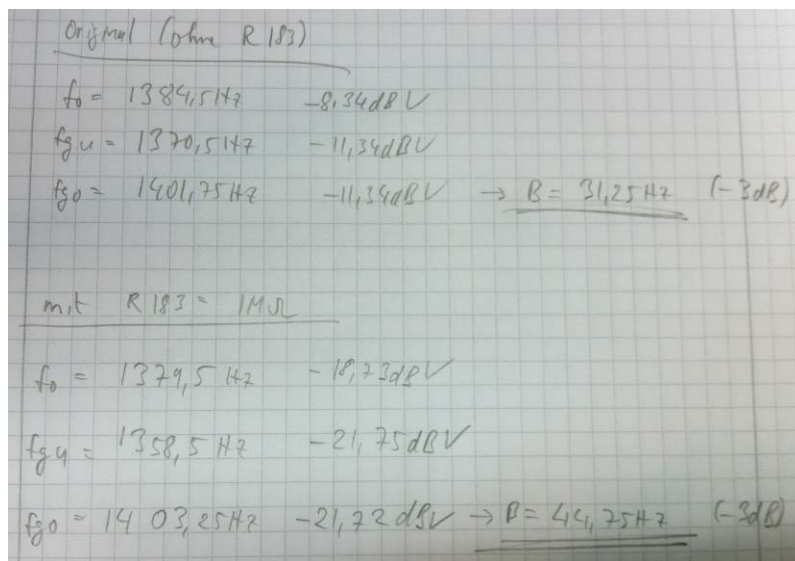 Original (ohne R 183)
f0 = 1384,5Hz -8,34dBV
fgu = 1370,5Hz -11,34dBV
fgo = 1401,75Hz -11,34dBV → B = 31,25Hz (-3dB)
mit R 183 = 1MΩ
f0 = 1379,5 Hz -18,73dBV
fgu = 1358,5 Hz -21,75dBV
fgo = 1403,25Hz -21,72dBV → B = 44,75Hz (-3dB)